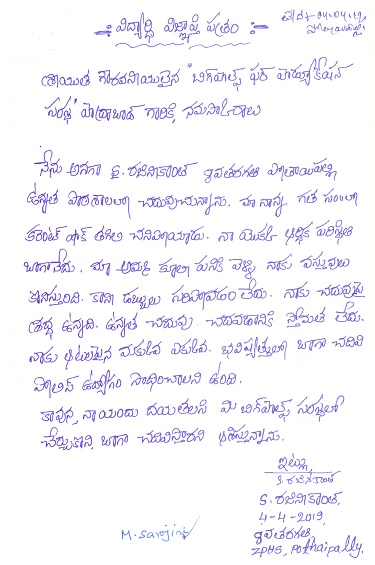 విద్యార్థి విజ్ఞాప్తి పత్రం
శ్రీయుత గౌరవనీయులైన "బిగ్‌హెల్ప్ ఫర్ ఎడ్యుకేషన్
సంస్థ" హైద్రాబాద్ గారికి, నమస్కారాలు
నేను అనగా S. రజినికాంత్ 9వతరగతి పోతాయిపల్లి
ఉన్నత పాఠశాలలో చదువుచున్నాను. మా నాన్న గత సం॥లో
కరెంట్ షాక్ తగిలి చనిపోయాడు. నా యొక్క ఆర్థిక పరిస్థితి
బాగాలేదు. మా అమ్మ కూలి పనికి వెళ్ళి నాకు వస్తువులు
కొనిస్తుంది. కాని డబ్బులు సరిపోవడం లేదు. నాకు చదువుపై
శ్రద్ధ ఉన్నది. ఉన్నత చదువు చదవడానికి స్తోమత లేదు.
నాకు ఆటలపైన మక్కువ ఎక్కువ. భవిష్యత్తులో బాగా చదివి
పోలిస్ ఉద్యోగం సాధించాలని ఉంది.
కావున, నాయందు దయతలచి మీ బిగ్‌హెల్ప్ సంస్థలో
చేర్చుకొని, బాగా చదివిస్తారని ఆశిస్తున్నాను.
ఇట్లు,
S. రజినికాంత్
S. రజినికాంత్,
4-4-2019,
9వతరగతి
ZPHS, Pothaipally.
M. Sarojini